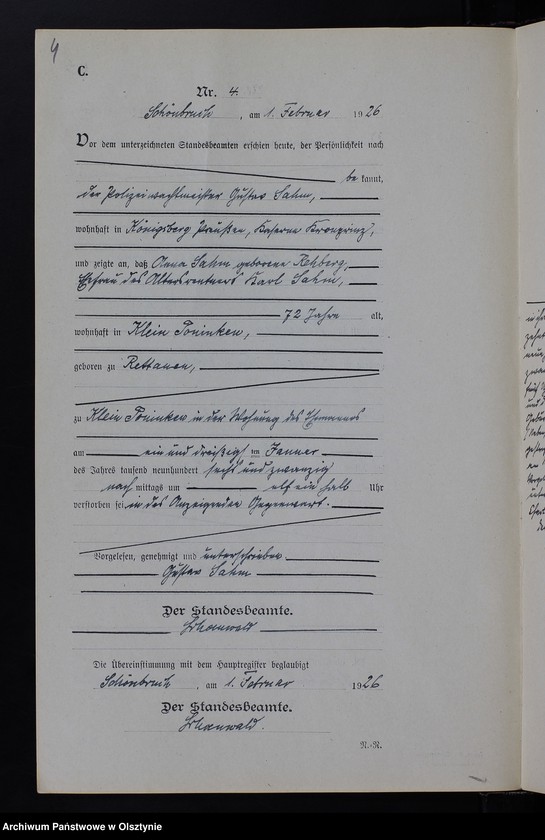 4
C.
Nr. 4.
Schönbruch, am 1. Februar 1926
Vor dem unterzeichneten Standesbeamten erschien heute, der Persönlichkeit nach
be kannt,
der Polizeiwachtmeister Gustav Sahm,
wohnhaft in Königsberg Preußen, Kaserne Kronprinz,
und zeigte an, daß Anna Sahm geborene Rehberg,
Ehefrau des Altersrentners Karl Sahm,
72 Jahre alt,
wohnhaft in Klein Poninken,
geboren zu Rettauen,
zu Klein Poninken in der Wohnung des Ehemannes
am ein und dreißigsten Januar
des Jahres tausend neunhundert sechs und zwanzig
nach mittags um elf ein halb Uhr
verstorben sei in des Anzeigenden Gegenwart.
Vorgelesen, genehmigt und unterschrieben
Gustav Sahm
Der Standesbeamte.
Die Übereinstimmung mit dem Hauptregister beglaubigt
Schönbruch, am 1. Februar 1926
Der Standesbeamte.
N.-R.
Archiwum Państwowe w Olsztynie